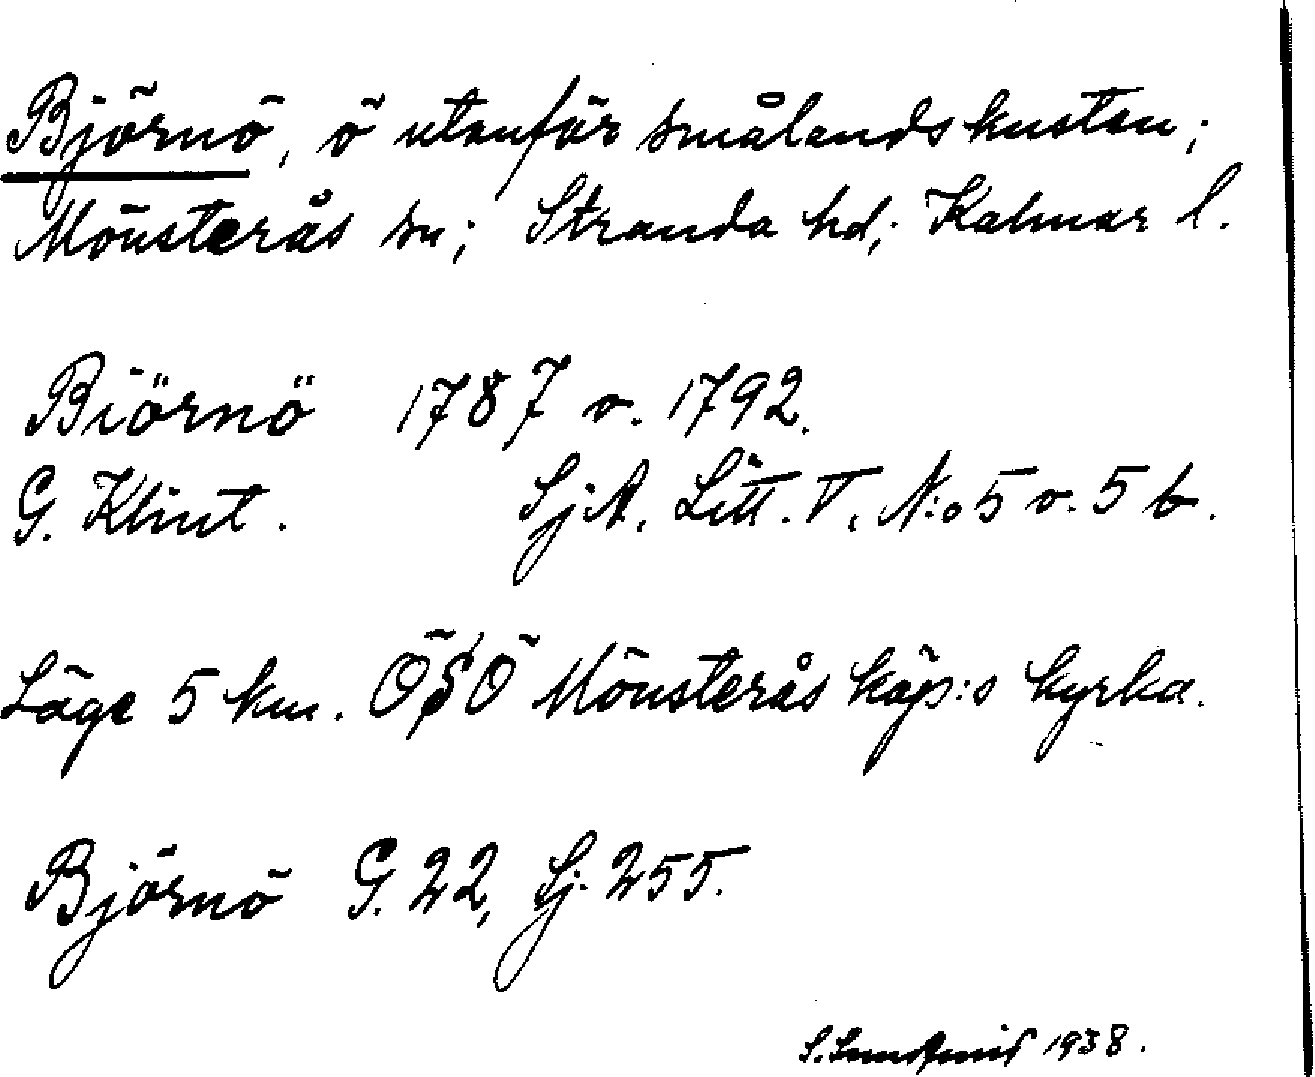 Björnö, ö utanför smålandskusten;
Mönsterås sn; Stranda hd; Kalmar l.
Biörnö 1787 o. 1792.
G. Klint. SjA. Litt. V. N:o 5 o. 5 b.
Läge 5 km. ÖSÖ Mönsterås köp:s kyrka.
Björnö G. 22, Sj. 255.
S. Sundqvist 1938.